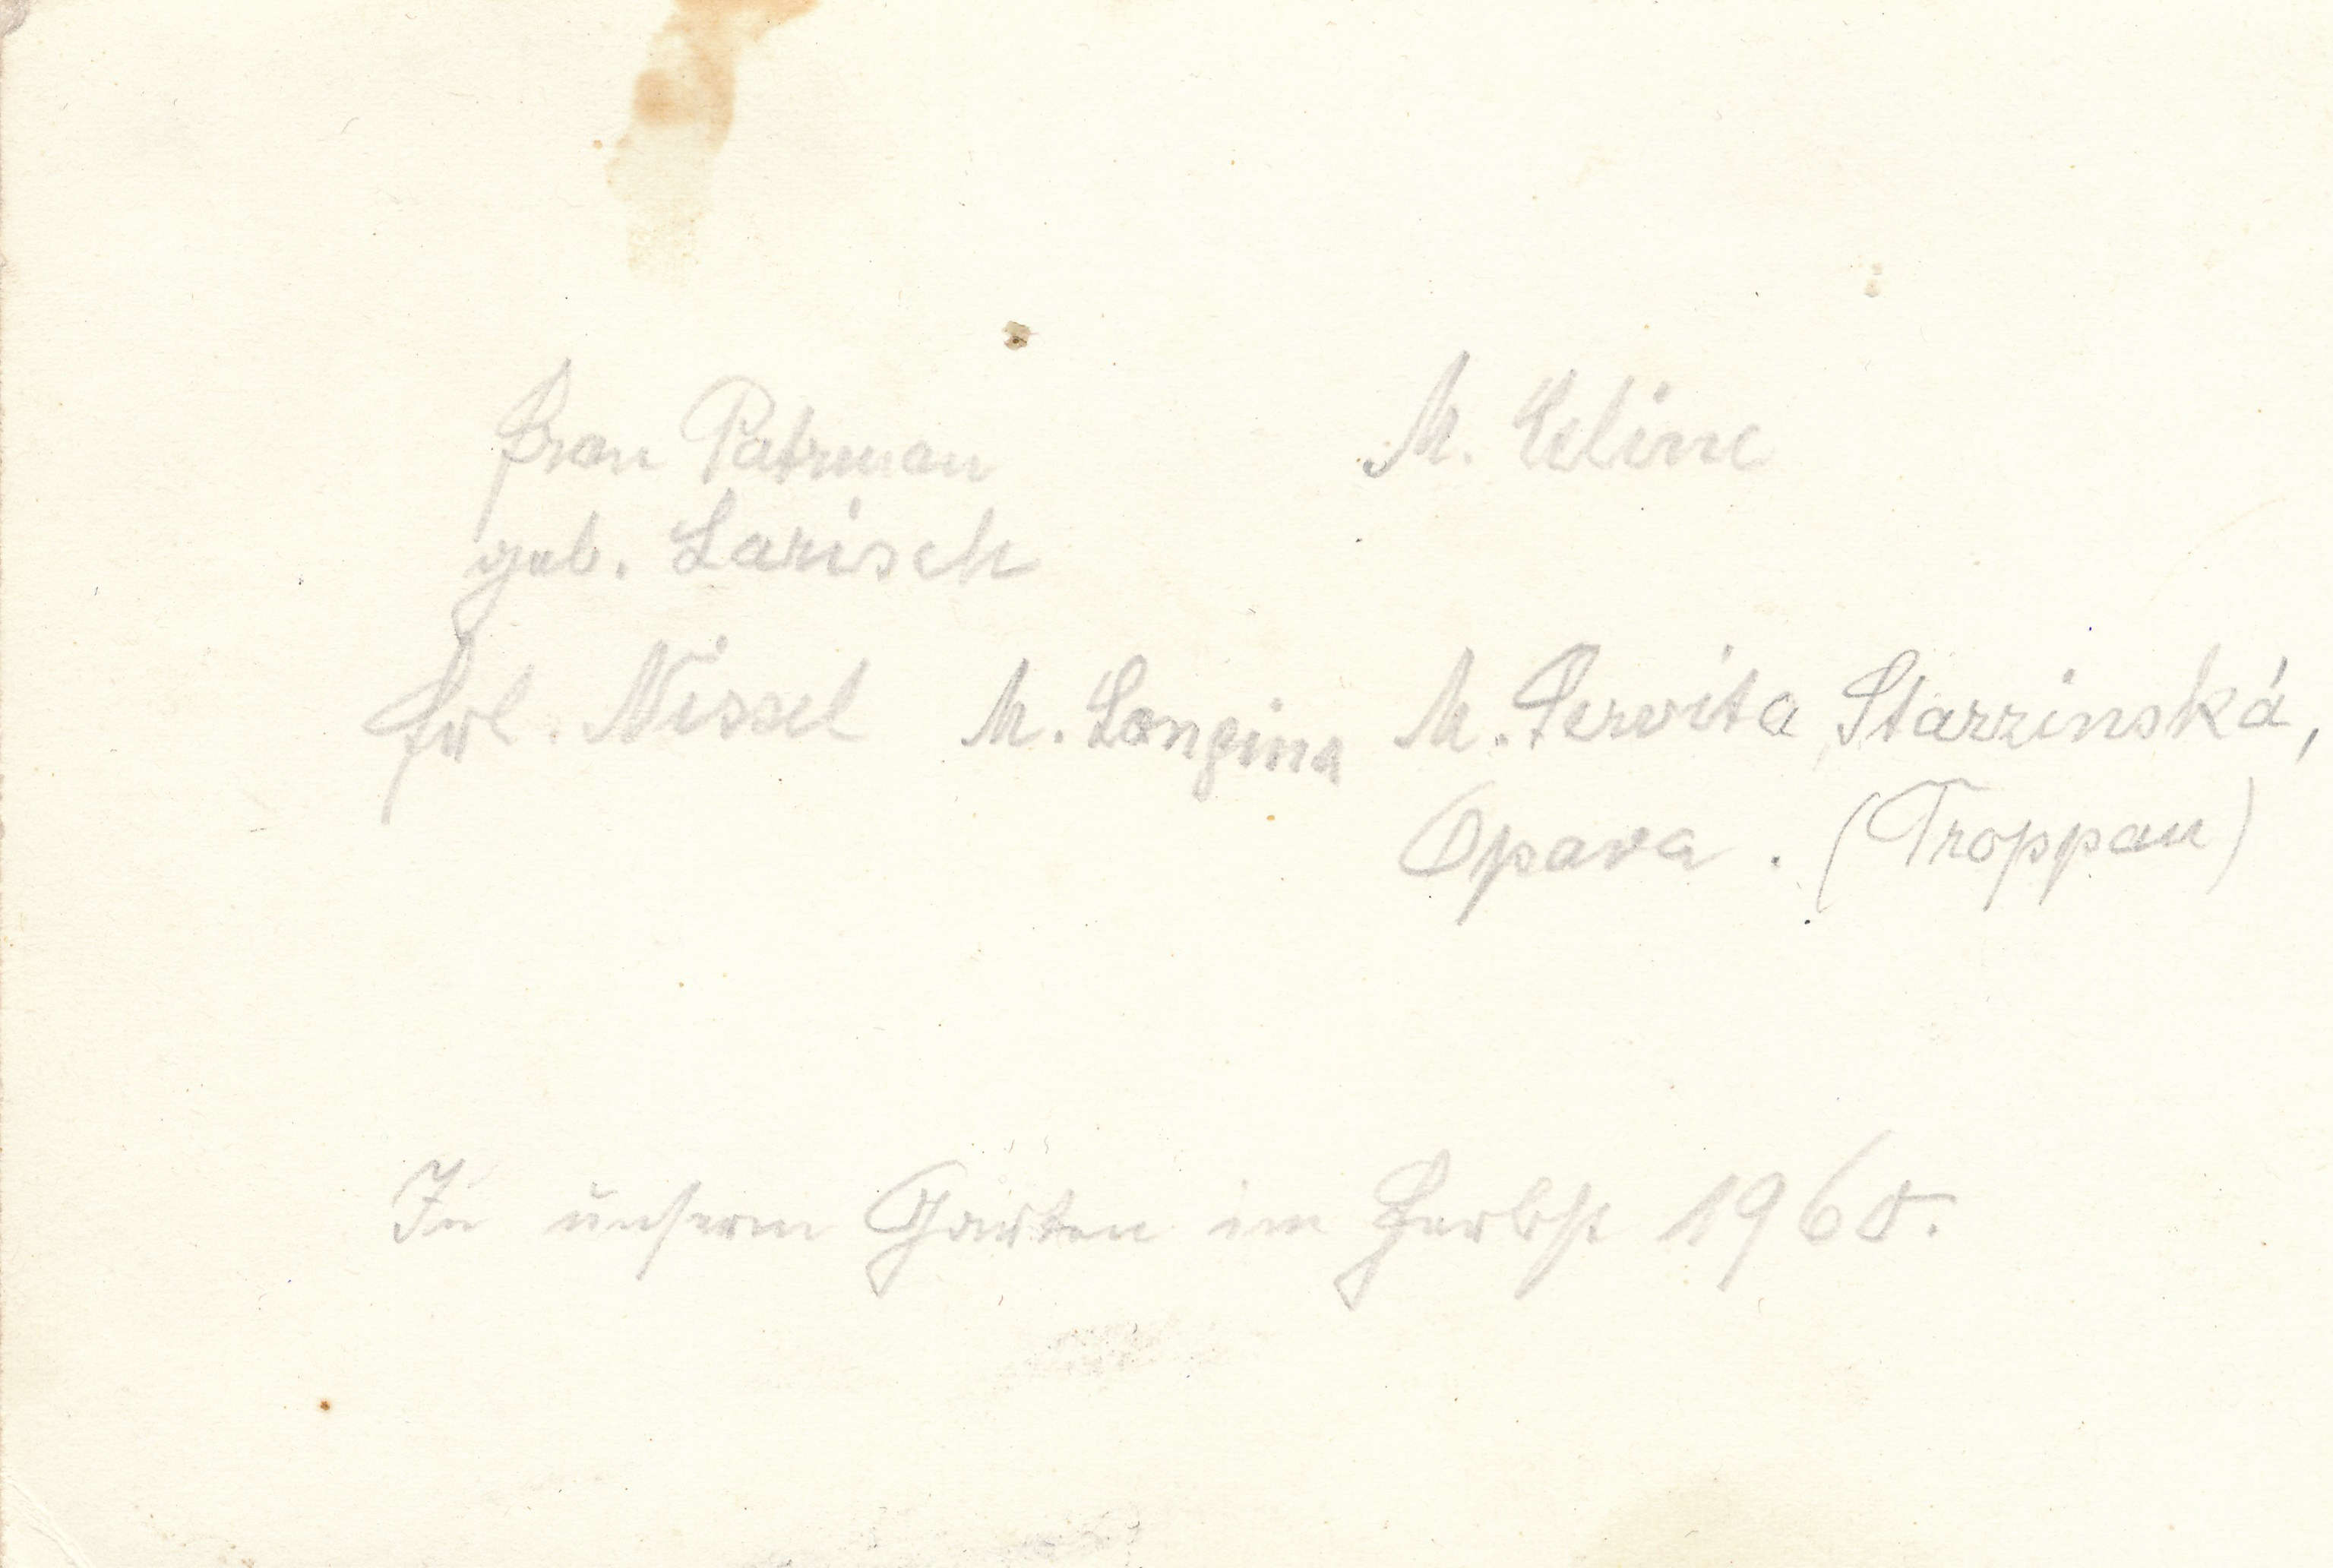 Frau Patzman M. Celine
geb. Larisch
Frl. Nissel M. Longina M. Servita Starzinská,
Opava. (Troppau)
In unserm Garten im Herbst 1960.